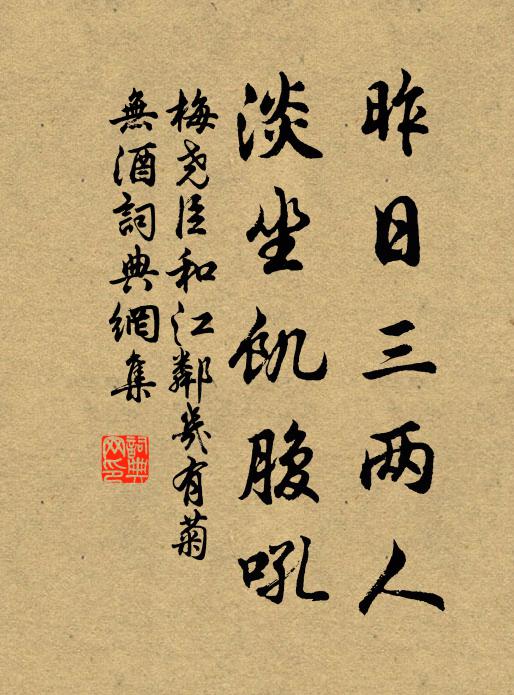 昨日三两人
淡坐飢腹吼
梅尧臣和江鄰幾有菊
無酒詞典網集
詞典网印